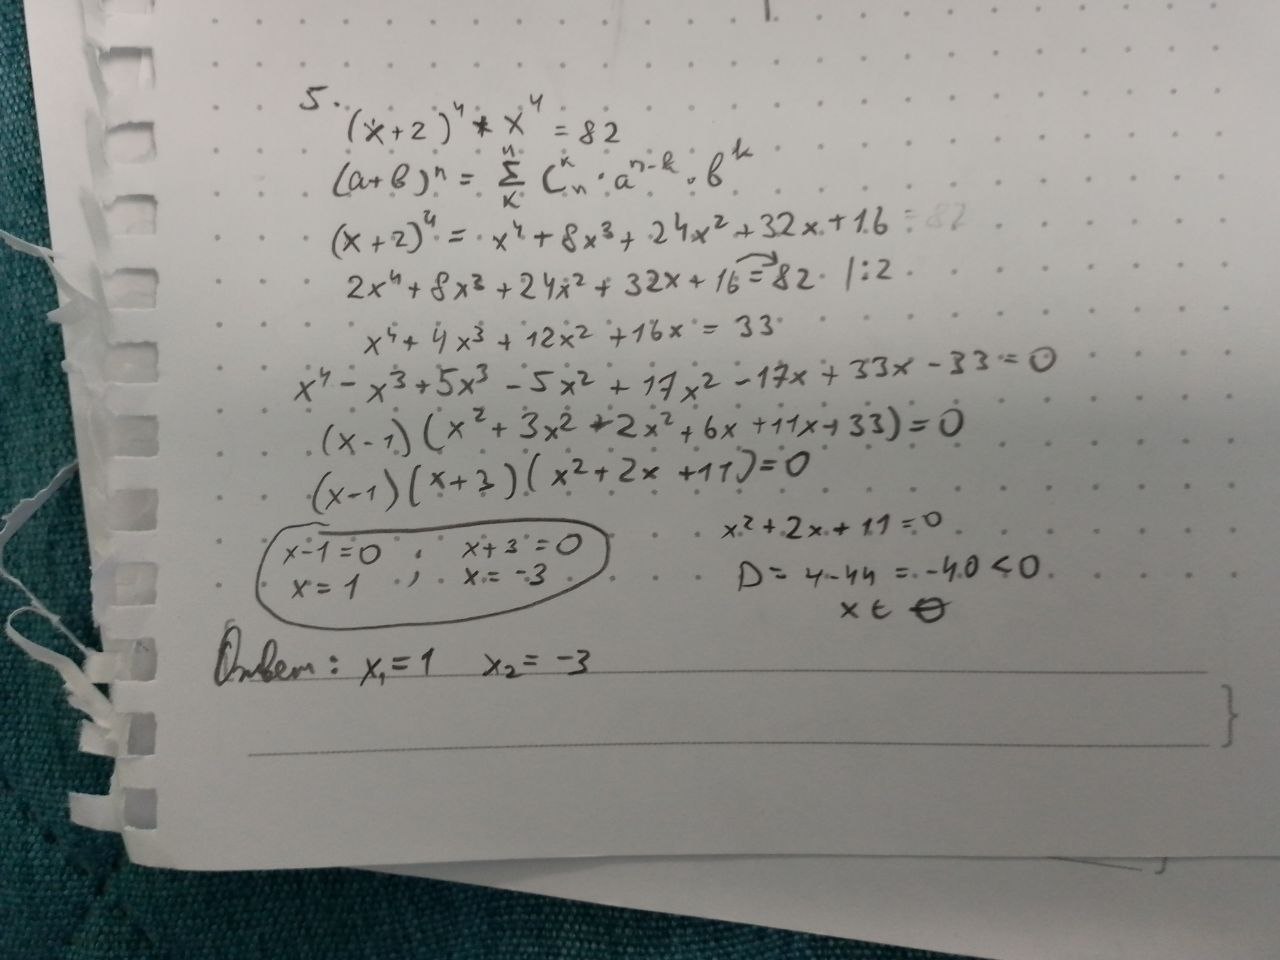 5.
(x+2)⁴ + x⁴ = 82
(a+b)ⁿ = Σₖⁿ Cₙᵏ · aⁿ⁻ᵏ · bᵏ
(x+2)⁴ = x⁴ + 8x³ + 24x² + 32x + 16 = 82
2x⁴ + 8x³ + 24x² + 32x + 16 = 82 |:2
x⁴ + 4x³ + 12x² + 16x = 33
x⁴ - x³ + 5x³ - 5x² + 17x² - 17x + 33x - 33 = 0
(x-1)(x² + 3x² + 2x² + 6x + 11x + 33) = 0
(x-1)(x+3)(x² + 2x + 11) = 0
x-1=0 ; x+3=0
x=1 ; x=-3
x² + 2x + 11 = 0
D = 4-44 = -40 < 0
x ∈ ∅
Ответ: x₁ = 1 x₂ = -3